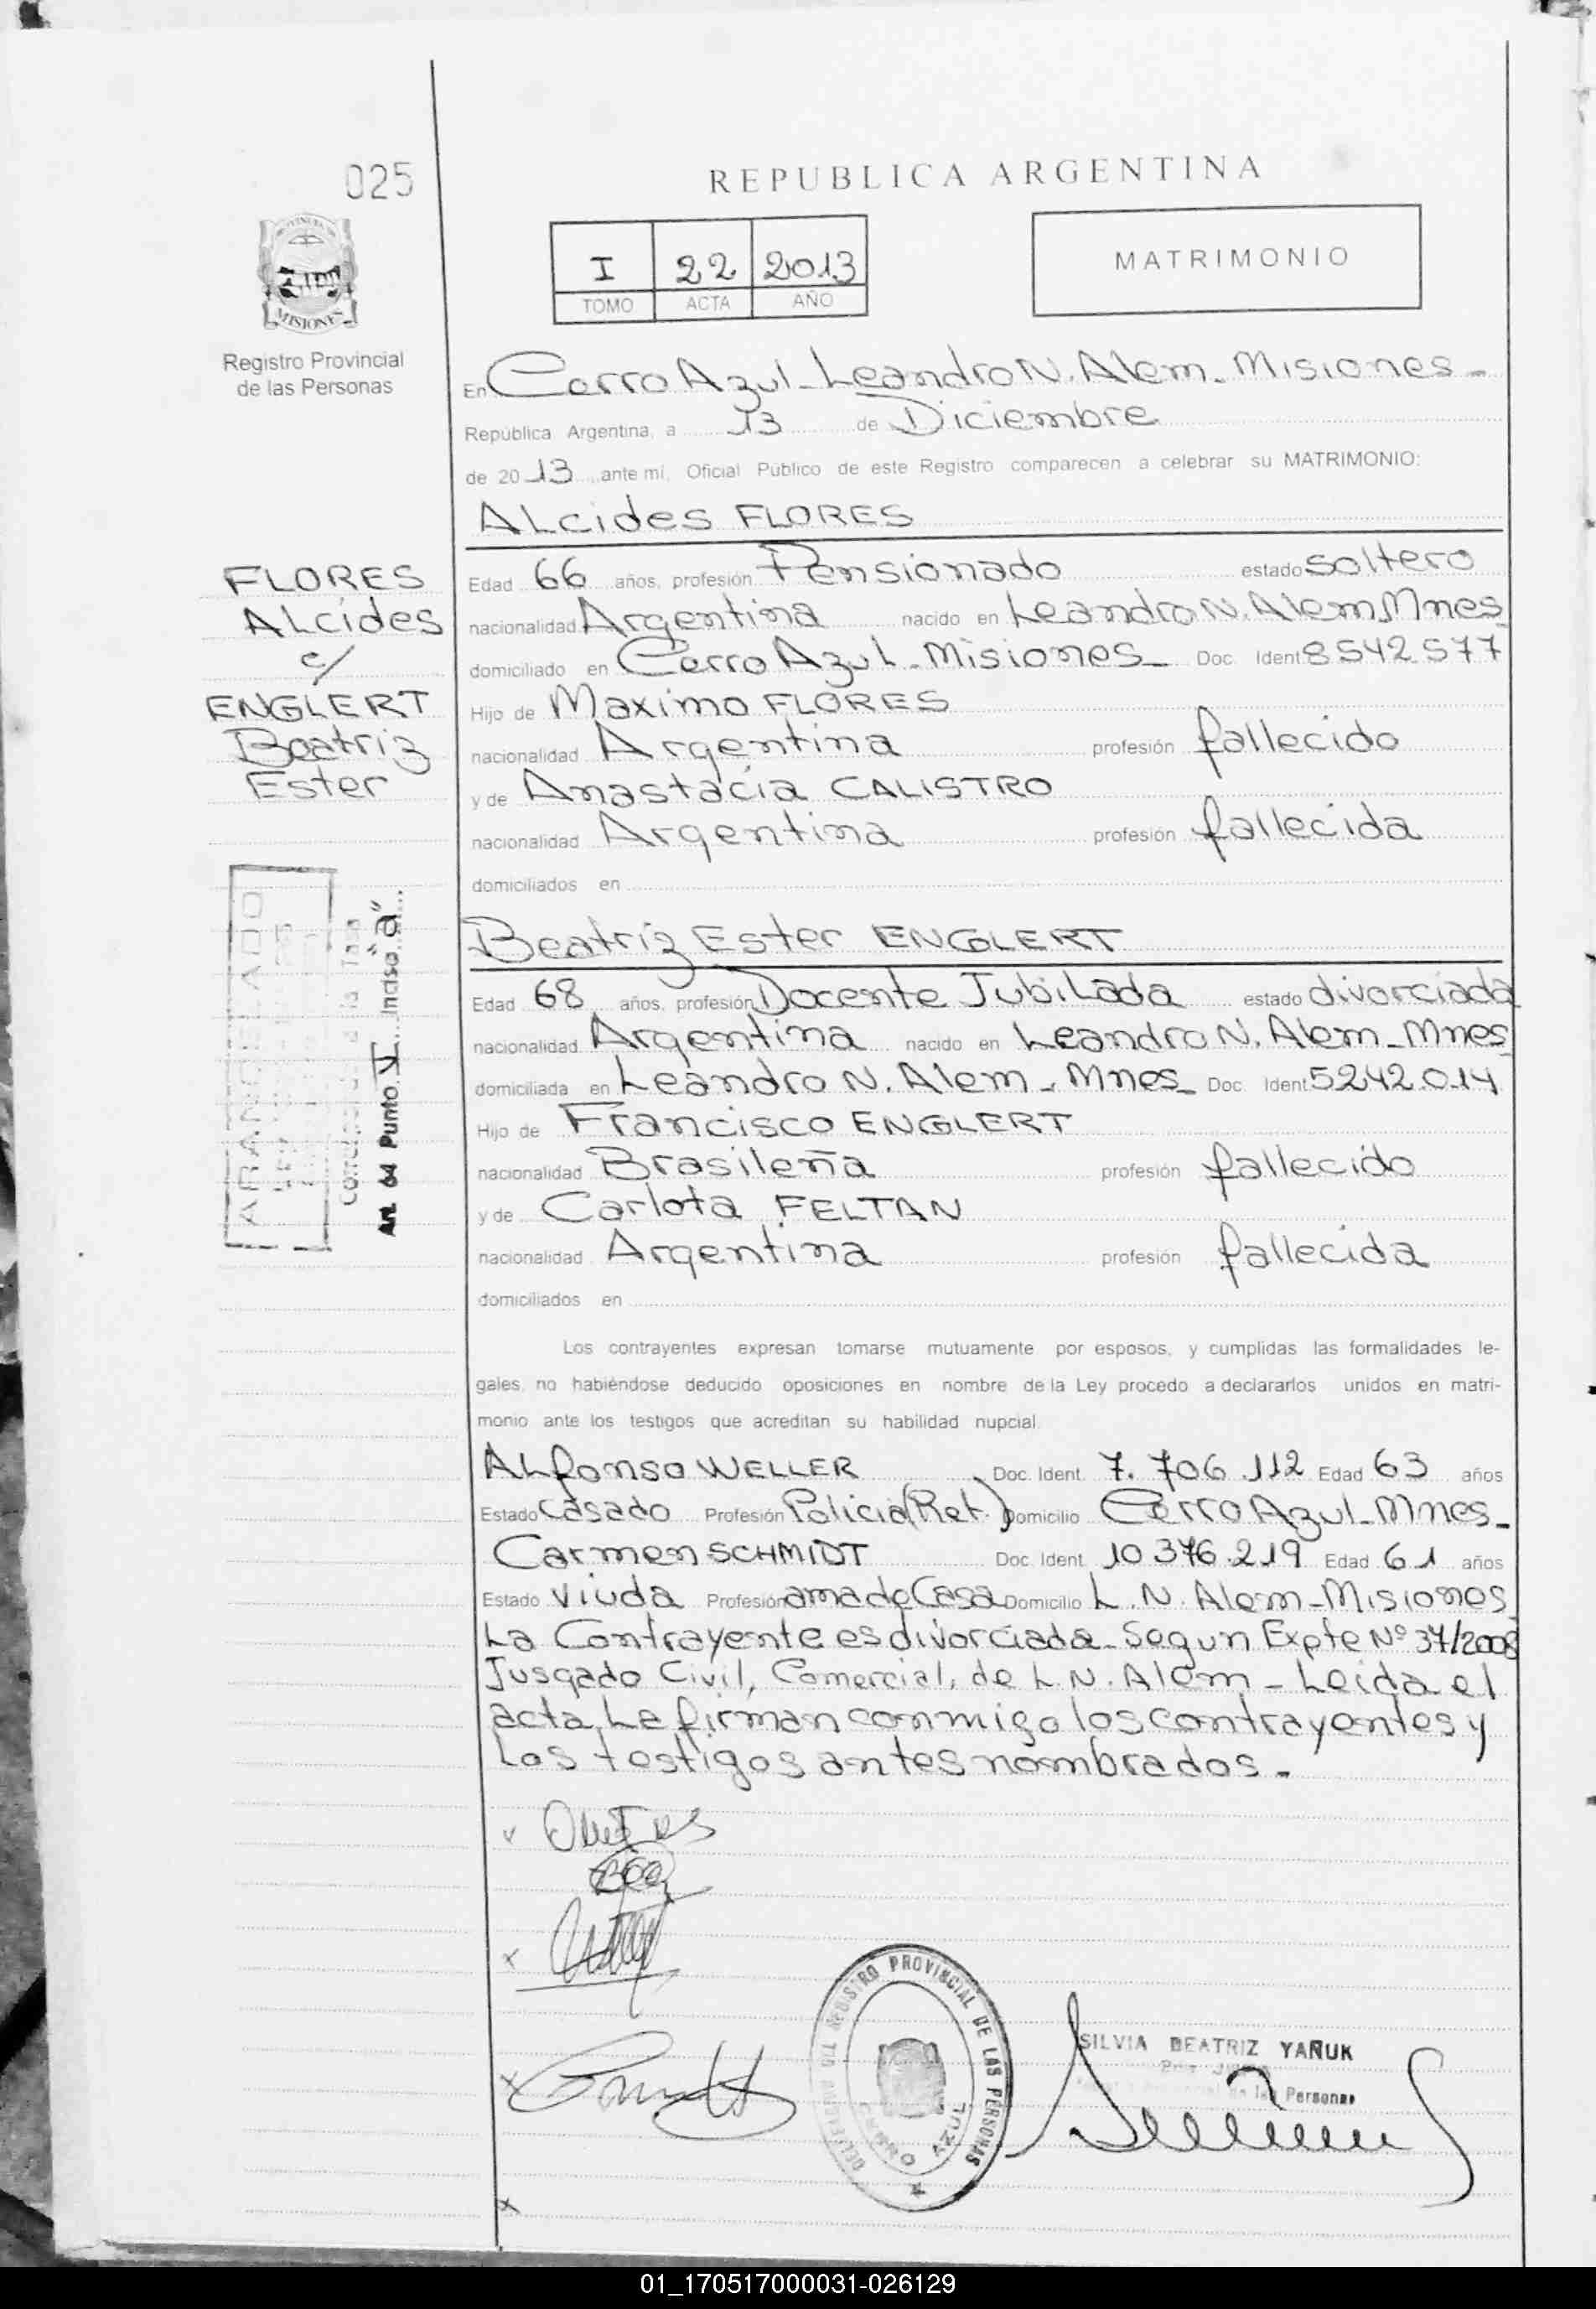 025
REPUBLICA ARGENTINA
PROVINCIA DE
MISIONES
Registro Provincial
de las Personas
I 22 2013
TOMO ACTA AÑO
MATRIMONIO
En Cerro Azul - Leandro N. Alem - Misiones -
República Argentina, a 13 de Diciembre
de 2013 ante mí, Oficial Público de este Registro comparecen a celebrar su MATRIMONIO:
ALcides FLORES
FLORES
ALcides
c/
ENGLERT
Beatriz
Ester
Edad 66 años, profesión Pensionado estado Soltero
nacionalidad Argentina nacido en Leandro N. Alem Mnes
domiciliado en Cerro Azul - Misiones - Doc. Ident 8542577
Hijo de Maximo FLORES
nacionalidad Argentina profesión fallecido
y de Anastacia CALISTRO
nacionalidad Argentina profesión fallecida
domiciliados en
Beatriz Ester ENGLERT
Edad 68 años, profesión Docente Jubilada estado divorciada
nacionalidad Argentina nacido en Leandro N. Alem - Mnes
domiciliada en Leandro N. Alem - Mnes - Doc. Ident 5242.014
Hijo de Francisco ENGLERT
nacionalidad Brasileña profesión fallecido
y de Carlota FELTAN
nacionalidad Argentina profesión fallecida
domiciliados en
ARANCELADO
a la Tasa
Art. 64 Punto VI Inciso "a"
Los contrayentes expresan tomarse mutuamente por esposos, y cumplidas las formalidades le-
gales, no habiéndose deducido oposiciones en nombre de la Ley procedo a declararlos unidos en matri-
monio ante los testigos que acreditan su habilidad nupcial.
ALfonso WELLER Doc. Ident. 7.706.112 Edad 63 años
Estado Casado Profesión Policia (Ret.) Domicilio Cerro Azul - Mnes -
Carmen SCHMIDT Doc. Ident. 10376.219 Edad 61 años
Estado Viuda Profesión ama de Casa Domicilio L. N. Alem - Misiones
La Contrayente es divorciada - Segun Expte Nº 37/2008
Jusgado Civil, Comercial, de L. N. Alem - Leida el
acta, La firman conmigo los contrayentes y
Los testigos antes nombrados. -
REGISTRO PROVINCIAL DE LAS PERSONAS
CERRO AZUL
SILVIA BEATRIZ YAÑUK
de las Personas
01_170517000031-026129